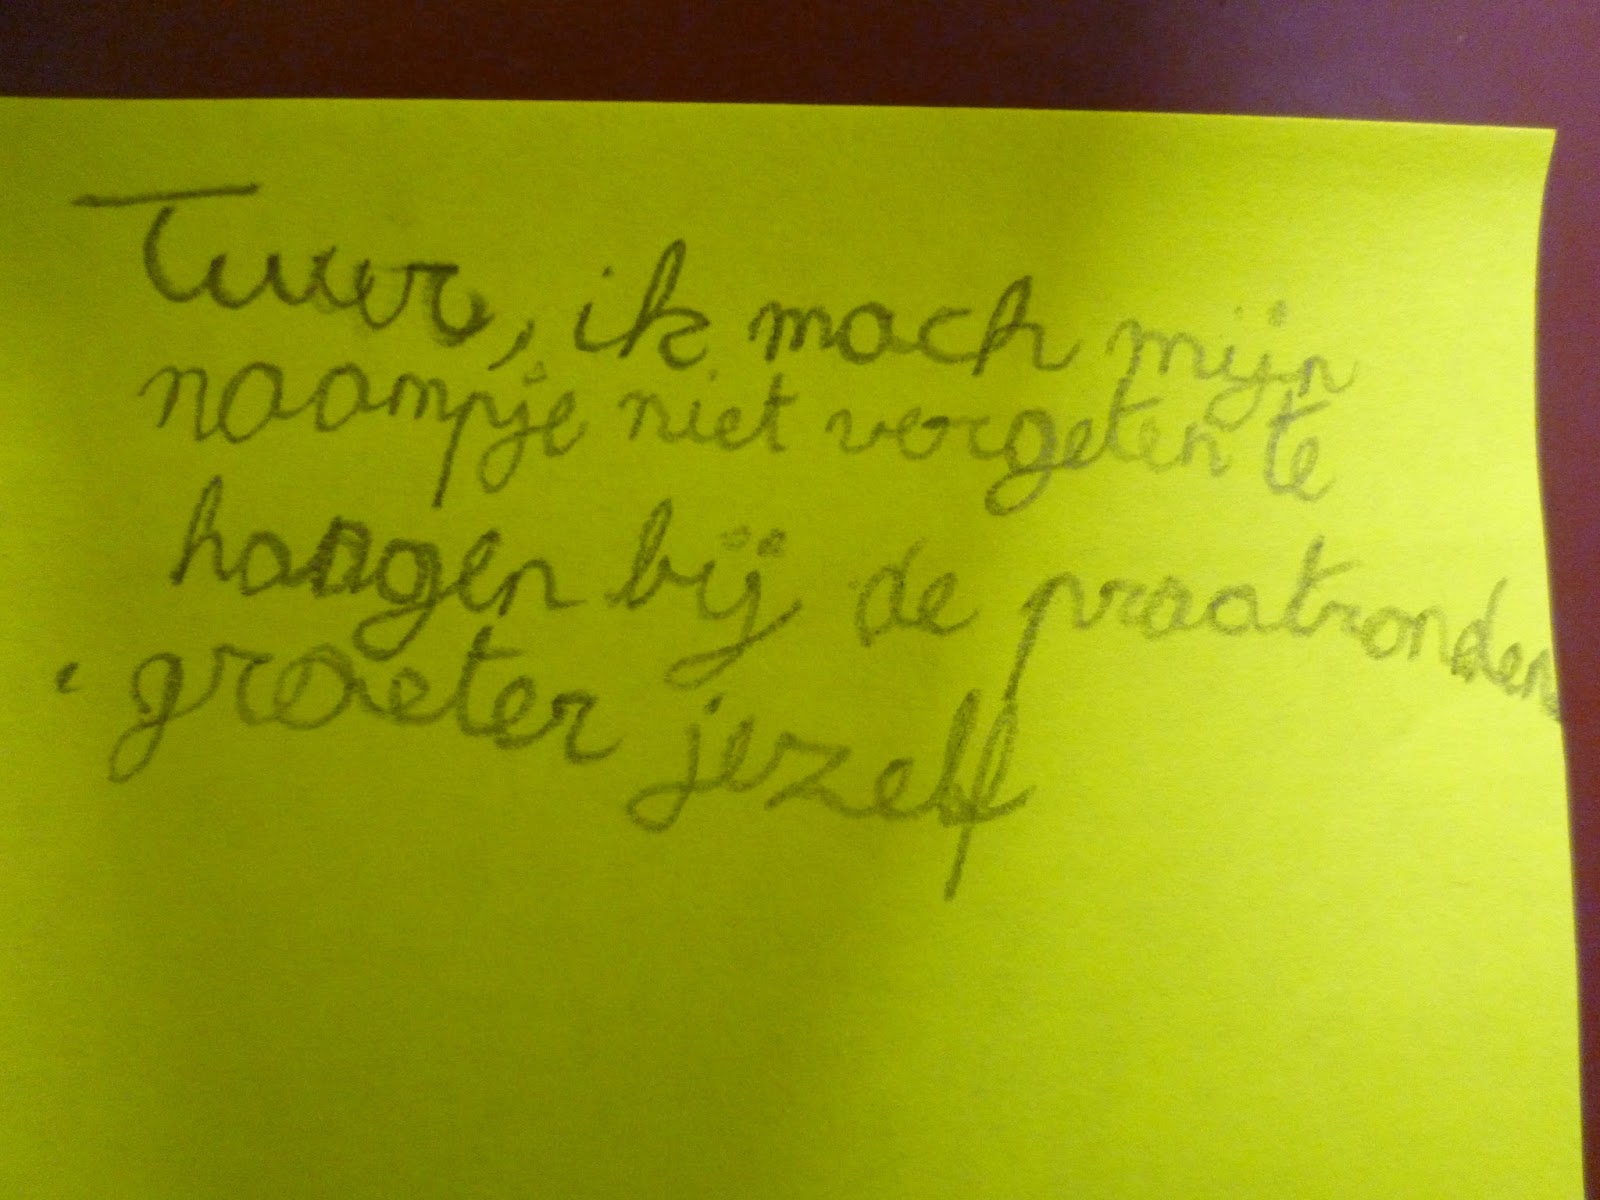 Tuur, ik mach mijn
naampje niet vergeten te
hangen bij de praatronden
. groeten jezelf